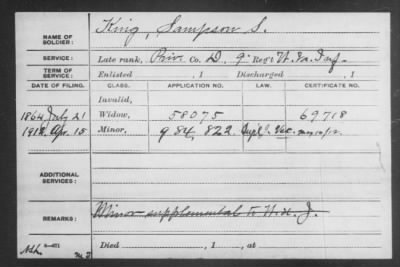 NAME OF SOLDIER: King, Sampson S.
SERVICE: Late rank, Priv. Co. D, 9" Reg't W. Va. Inf.
TERM OF SERVICE: Enlisted , 1 Discharged , 1
DATE OF FILING. CLASS. APPLICATION NO. LAW. CERTIFICATE NO.
Invalid,
1864 July 21 Widow, 58075 69718
1912, Apr. 15 Minor, 984,822
ADDITIONAL SERVICES:
REMARKS: Minor supplemental to
Died , 1 , at